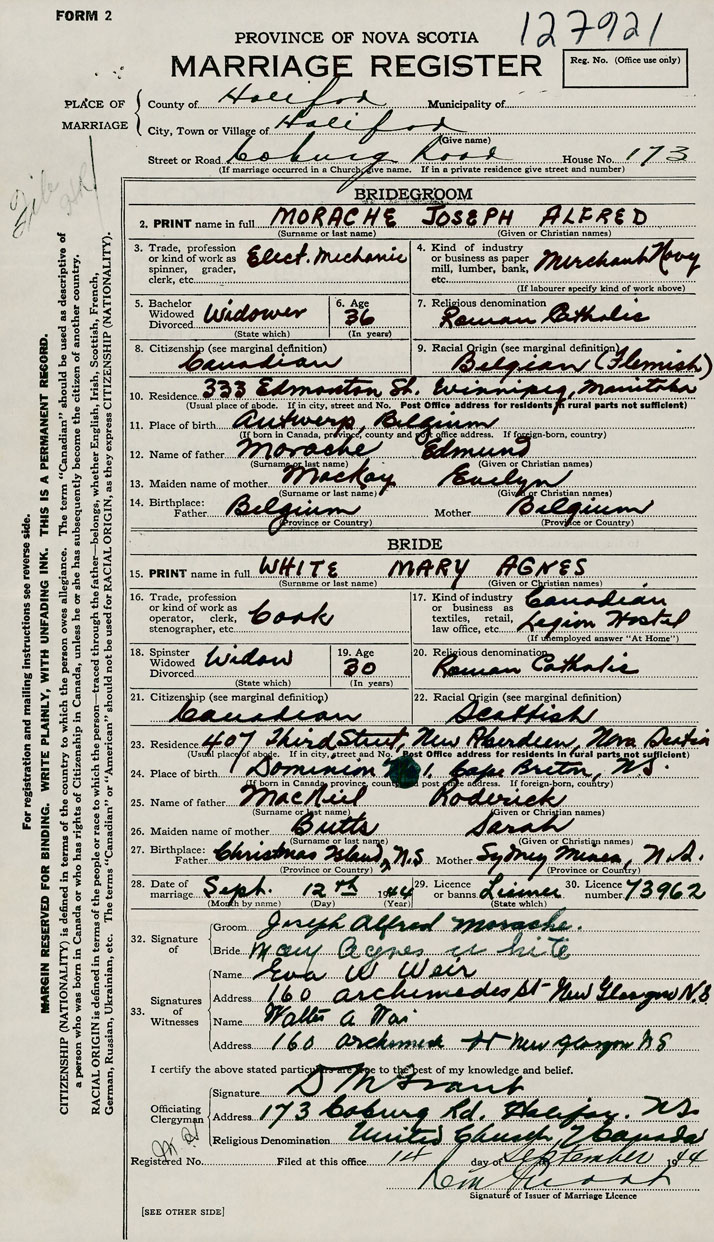 FORM 2
127921
PROVINCE OF NOVA SCOTIA
MARRIAGE REGISTER
Reg. No. (Office use only)
PLACE OF MARRIAGE
County of Halifax Municipality of
City, Town or Village of Halifax
(Give name)
Street or Road Coburg Road House No. 173
(If marriage occurred in a Church, give name. If in a private residence give street and number)
BRIDEGROOM
2. PRINT name in full MORACHE JOSEPH ALFRED
(Surname or last name) (Given or Christian names)
3. Trade, profession or kind of work as spinner, grader, clerk, etc. Elect. Mechanic
4. Kind of industry or business as paper mill, lumber, bank, etc. Merchant Navy
(If labourer specify kind of work above)
5. Bachelor Widowed Divorced Widower
(State which)
6. Age 36
(In years)
7. Religious denomination
Roman Catholic
8. Citizenship (see marginal definition)
Canadian
9. Racial Origin (see marginal definition)
Belgian (Flemish)
10. Residence 333 Edmonton St. Winnipeg, Manitoba
(Usual place of abode. If in city, street and No. Post Office address for residents in rural parts not sufficient)
11. Place of birth Antwerp, Belgium
(If born in Canada, province, county and post office address. If foreign-born, country)
12. Name of father Morache Edmund
(Surname or last name) (Given or Christian names)
13. Maiden name of mother MacKay Evelyn
(Surname or last name) (Given or Christian names)
14. Birthplace: Father Belgium Mother Belgium
(Province or Country) (Province or Country)
BRIDE
15. PRINT name in full WHITE MARY AGNES
(Surname or last name) (Given or Christian names)
16. Trade, profession or kind of work as operator, clerk, stenographer, etc. Cook
17. Kind of industry or business as textiles, retail, law office, etc. Canadian Legion Hostel
(If unemployed answer "At Home")
18. Spinster Widowed Divorced Widow
(State which)
19. Age 30
(In years)
20. Religious denomination
Roman Catholic
21. Citizenship (see marginal definition)
Canadian
22. Racial Origin (see marginal definition)
Scottish
23. Residence 407 Third Street, New Aberdeen, Nova Scotia
(Usual place of abode. If in city, street and No. Post Office address for residents in rural parts not sufficient)
24. Place of birth Dominion No 1, Cape Breton, N.S.
(If born in Canada, province, county and post office address. If foreign-born, country)
25. Name of father MacNeil Roderick
(Surname or last name) (Given or Christian names)
26. Maiden name of mother Butts Sarah
(Surname or last name) (Given or Christian names)
27. Birthplace: Father Christmas Island, N.S Mother Sydney Mines, N.S.
(Province or Country) (Province or Country)
28. Date of marriage Sept. 12th 1944
(Month by name) (Day) (Year)
29. Licence or banns License
(State which)
30. Licence number 73962
32. Signature of
Groom Joseph Alfred Morache.
Bride Mary Agnes White
33. Signatures of Witnesses
Name Eva W Weir
Address 160 Archimedes St New Glasgow N.S
Name Walter A
Address 160 New Glasgow N S
I certify the above stated particulars are true to the best of my knowledge and belief.
Officiating Clergyman
Signature D M Grant
Address 173 Coburg Rd. Halifax. N.S
Religious Denomination United Church, Canada
Registered No. Filed at this office 14 day of September 1944
Signature of Issuer of Marriage Licence
[SEE OTHER SIDE]
For registration and mailing instructions see reverse side.
MARGIN RESERVED FOR BINDING. WRITE PLAINLY, WITH UNFADING INK. THIS IS A PERMANENT RECORD.
CITIZENSHIP (NATIONALITY) is defined in terms of the country to which the person owes allegiance. The term "Canadian" should be used as descriptive of
a person who was born in Canada or who has rights of Citizenship in Canada, unless he or she has subsequently become the citizen of another country.
RACIAL ORIGIN is defined in terms of the people or race to which the person—traced through the father—belongs, whether English, Irish, Scottish, French,
German, Russian, Ukrainian, etc. The terms "Canadian" or "American" should not be used for RACIAL ORIGIN, as they express CITIZENSHIP (NATIONALITY).